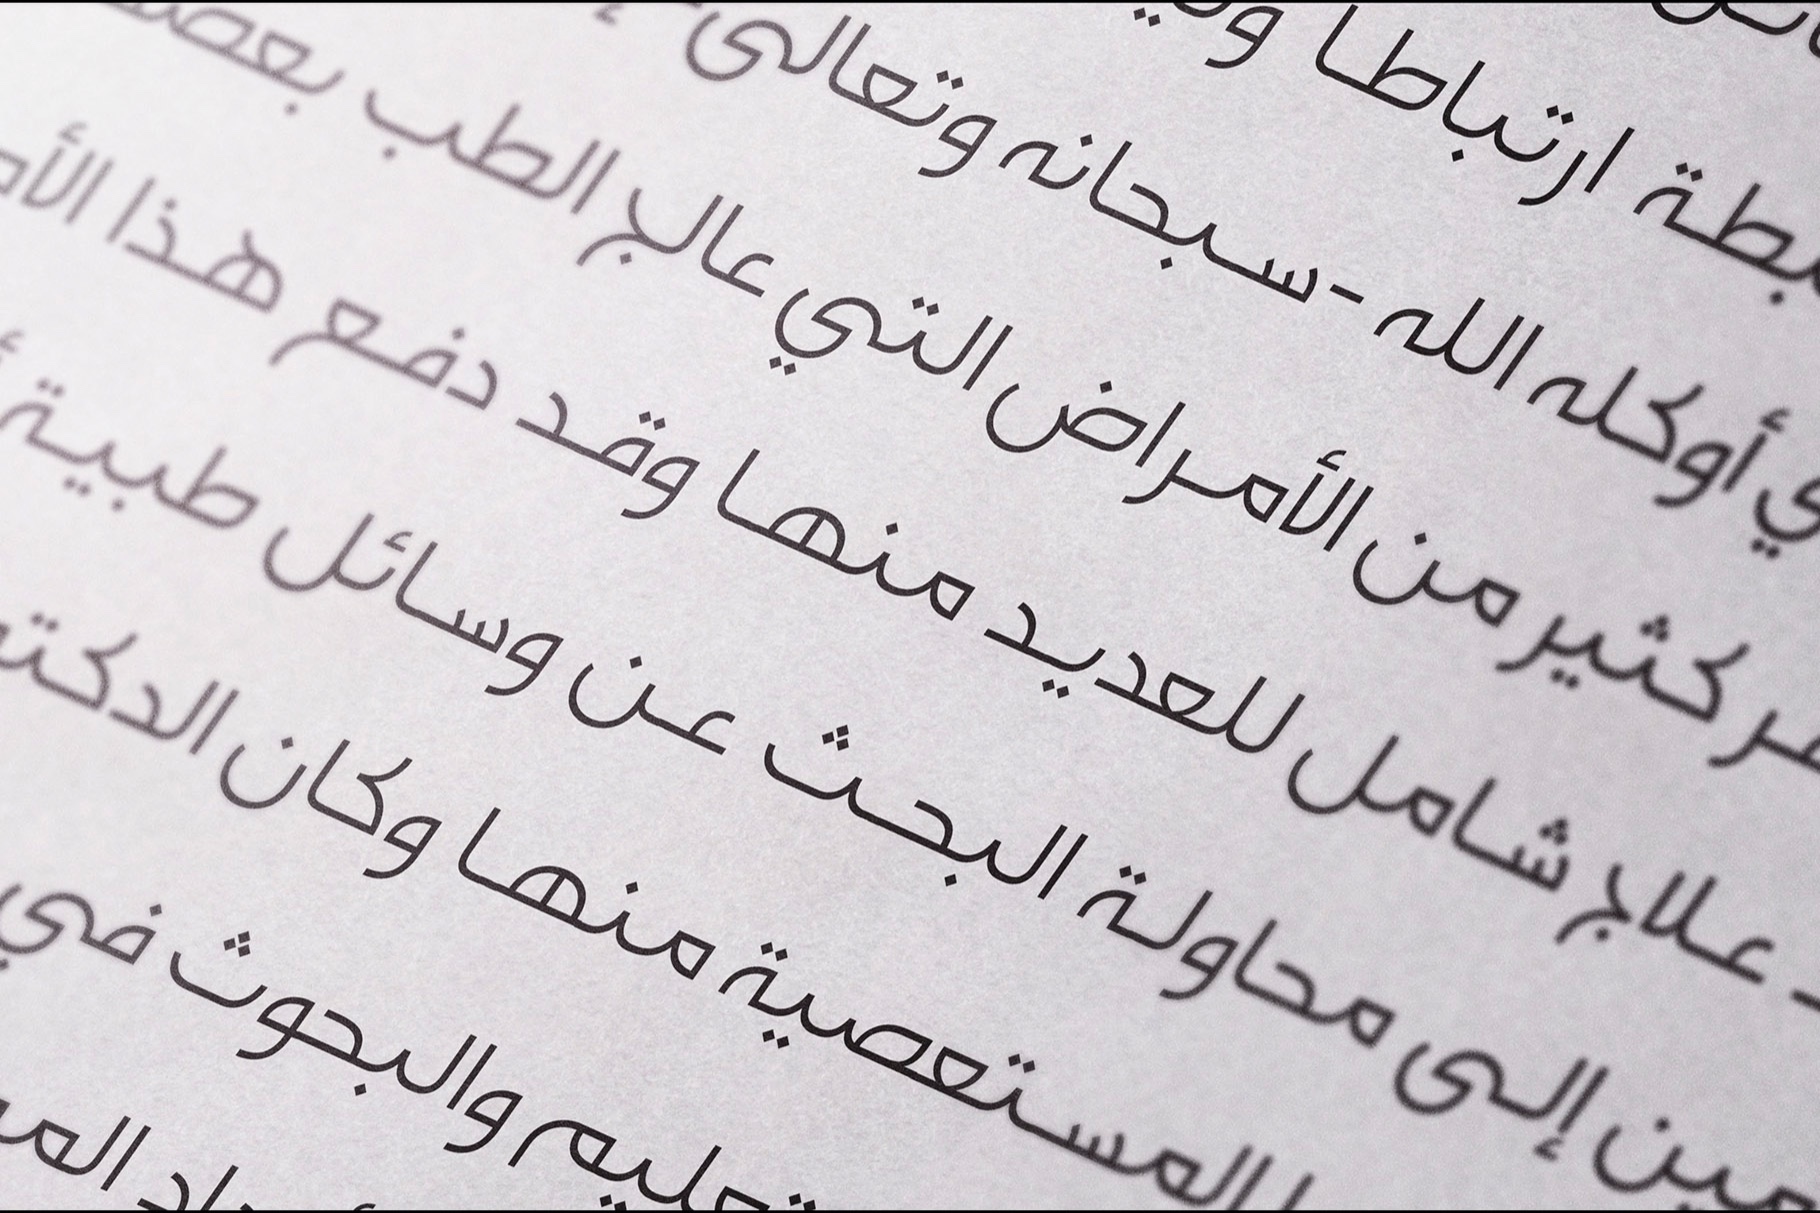 ارتباطا
أوكله الله -سبحانه وتعالى
كثير من الأمراض التي عالج الطب
علاج شامل للعديد منها وقد دفع هذا
إلى محاولة البحث عن وسائل طبية
المستعصية منها وكان
والبحوث في